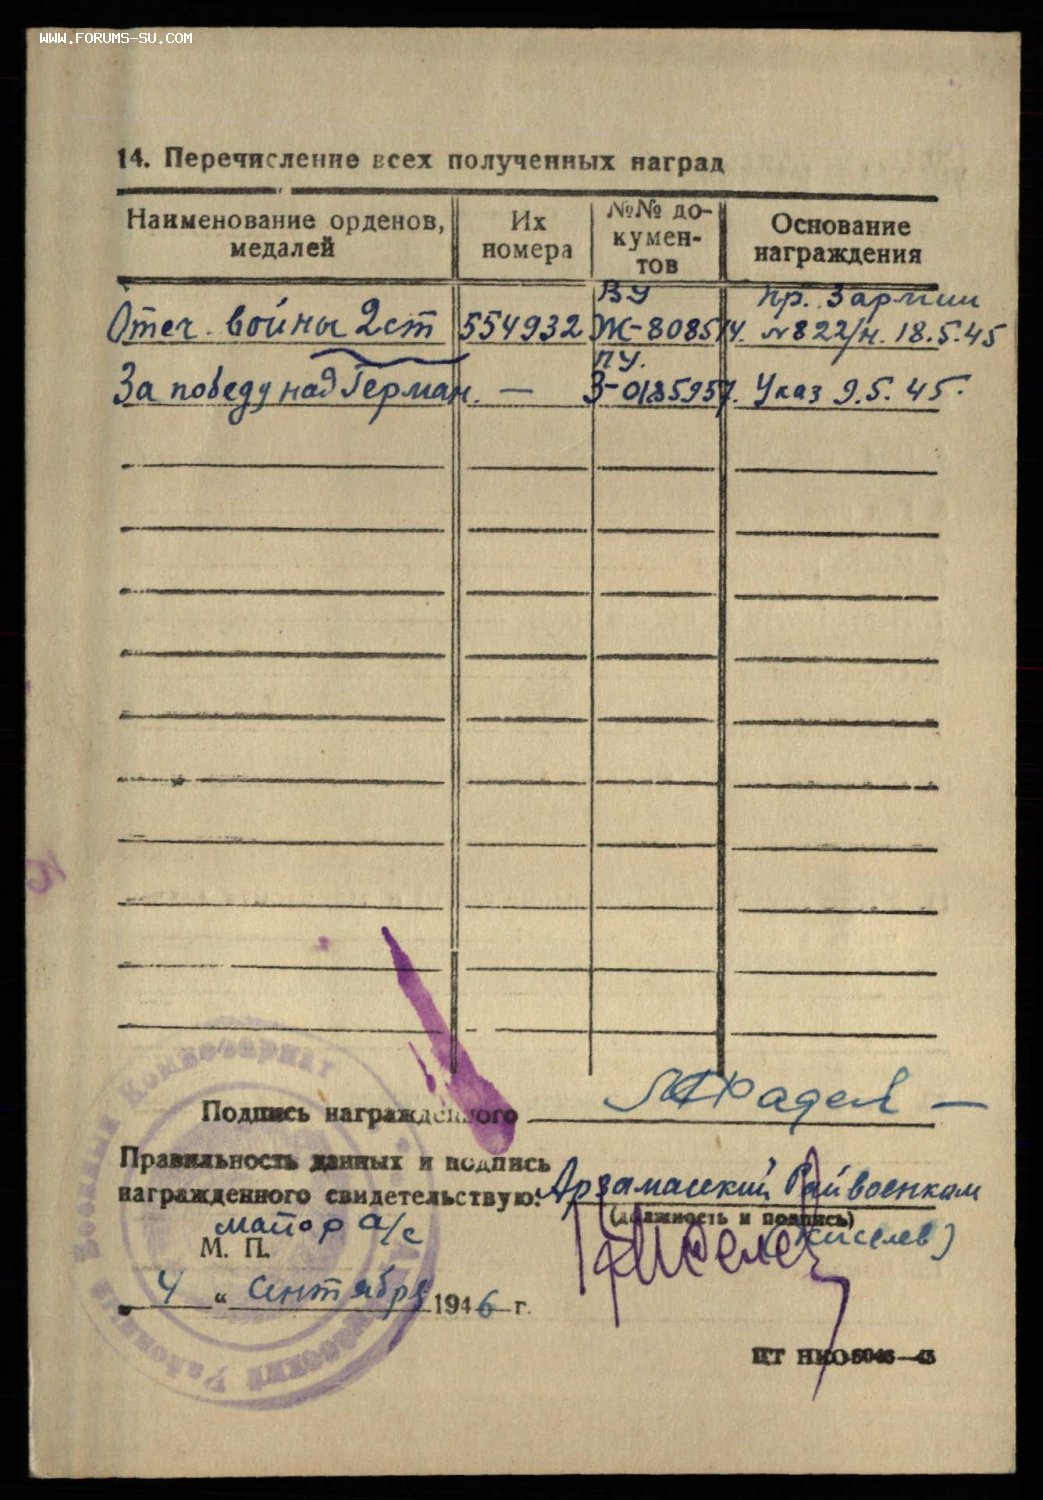 WWW.FORUMS-SU.COM
14. Перечисление всех полученных наград
Наименование орденов, медалей
Их номера
№№ документов
Основание награждения
Отеч. войны 2 ст
554932
ВУ Ж-808514.
пр. 3 армии №822/н. 18.5.45
За победу над Герман.
—
ПУ. З-0185957.
Указ 9.5.45.
Подпись награжденного
Правильность данных и подпись
награжденного свидетельствую: Арзамасский Райвоенком
(должность и подпись)
майор а/с
(Киселев)
М. П.
4 “ Сентября 1946 г.
Районный Военный Комиссариат